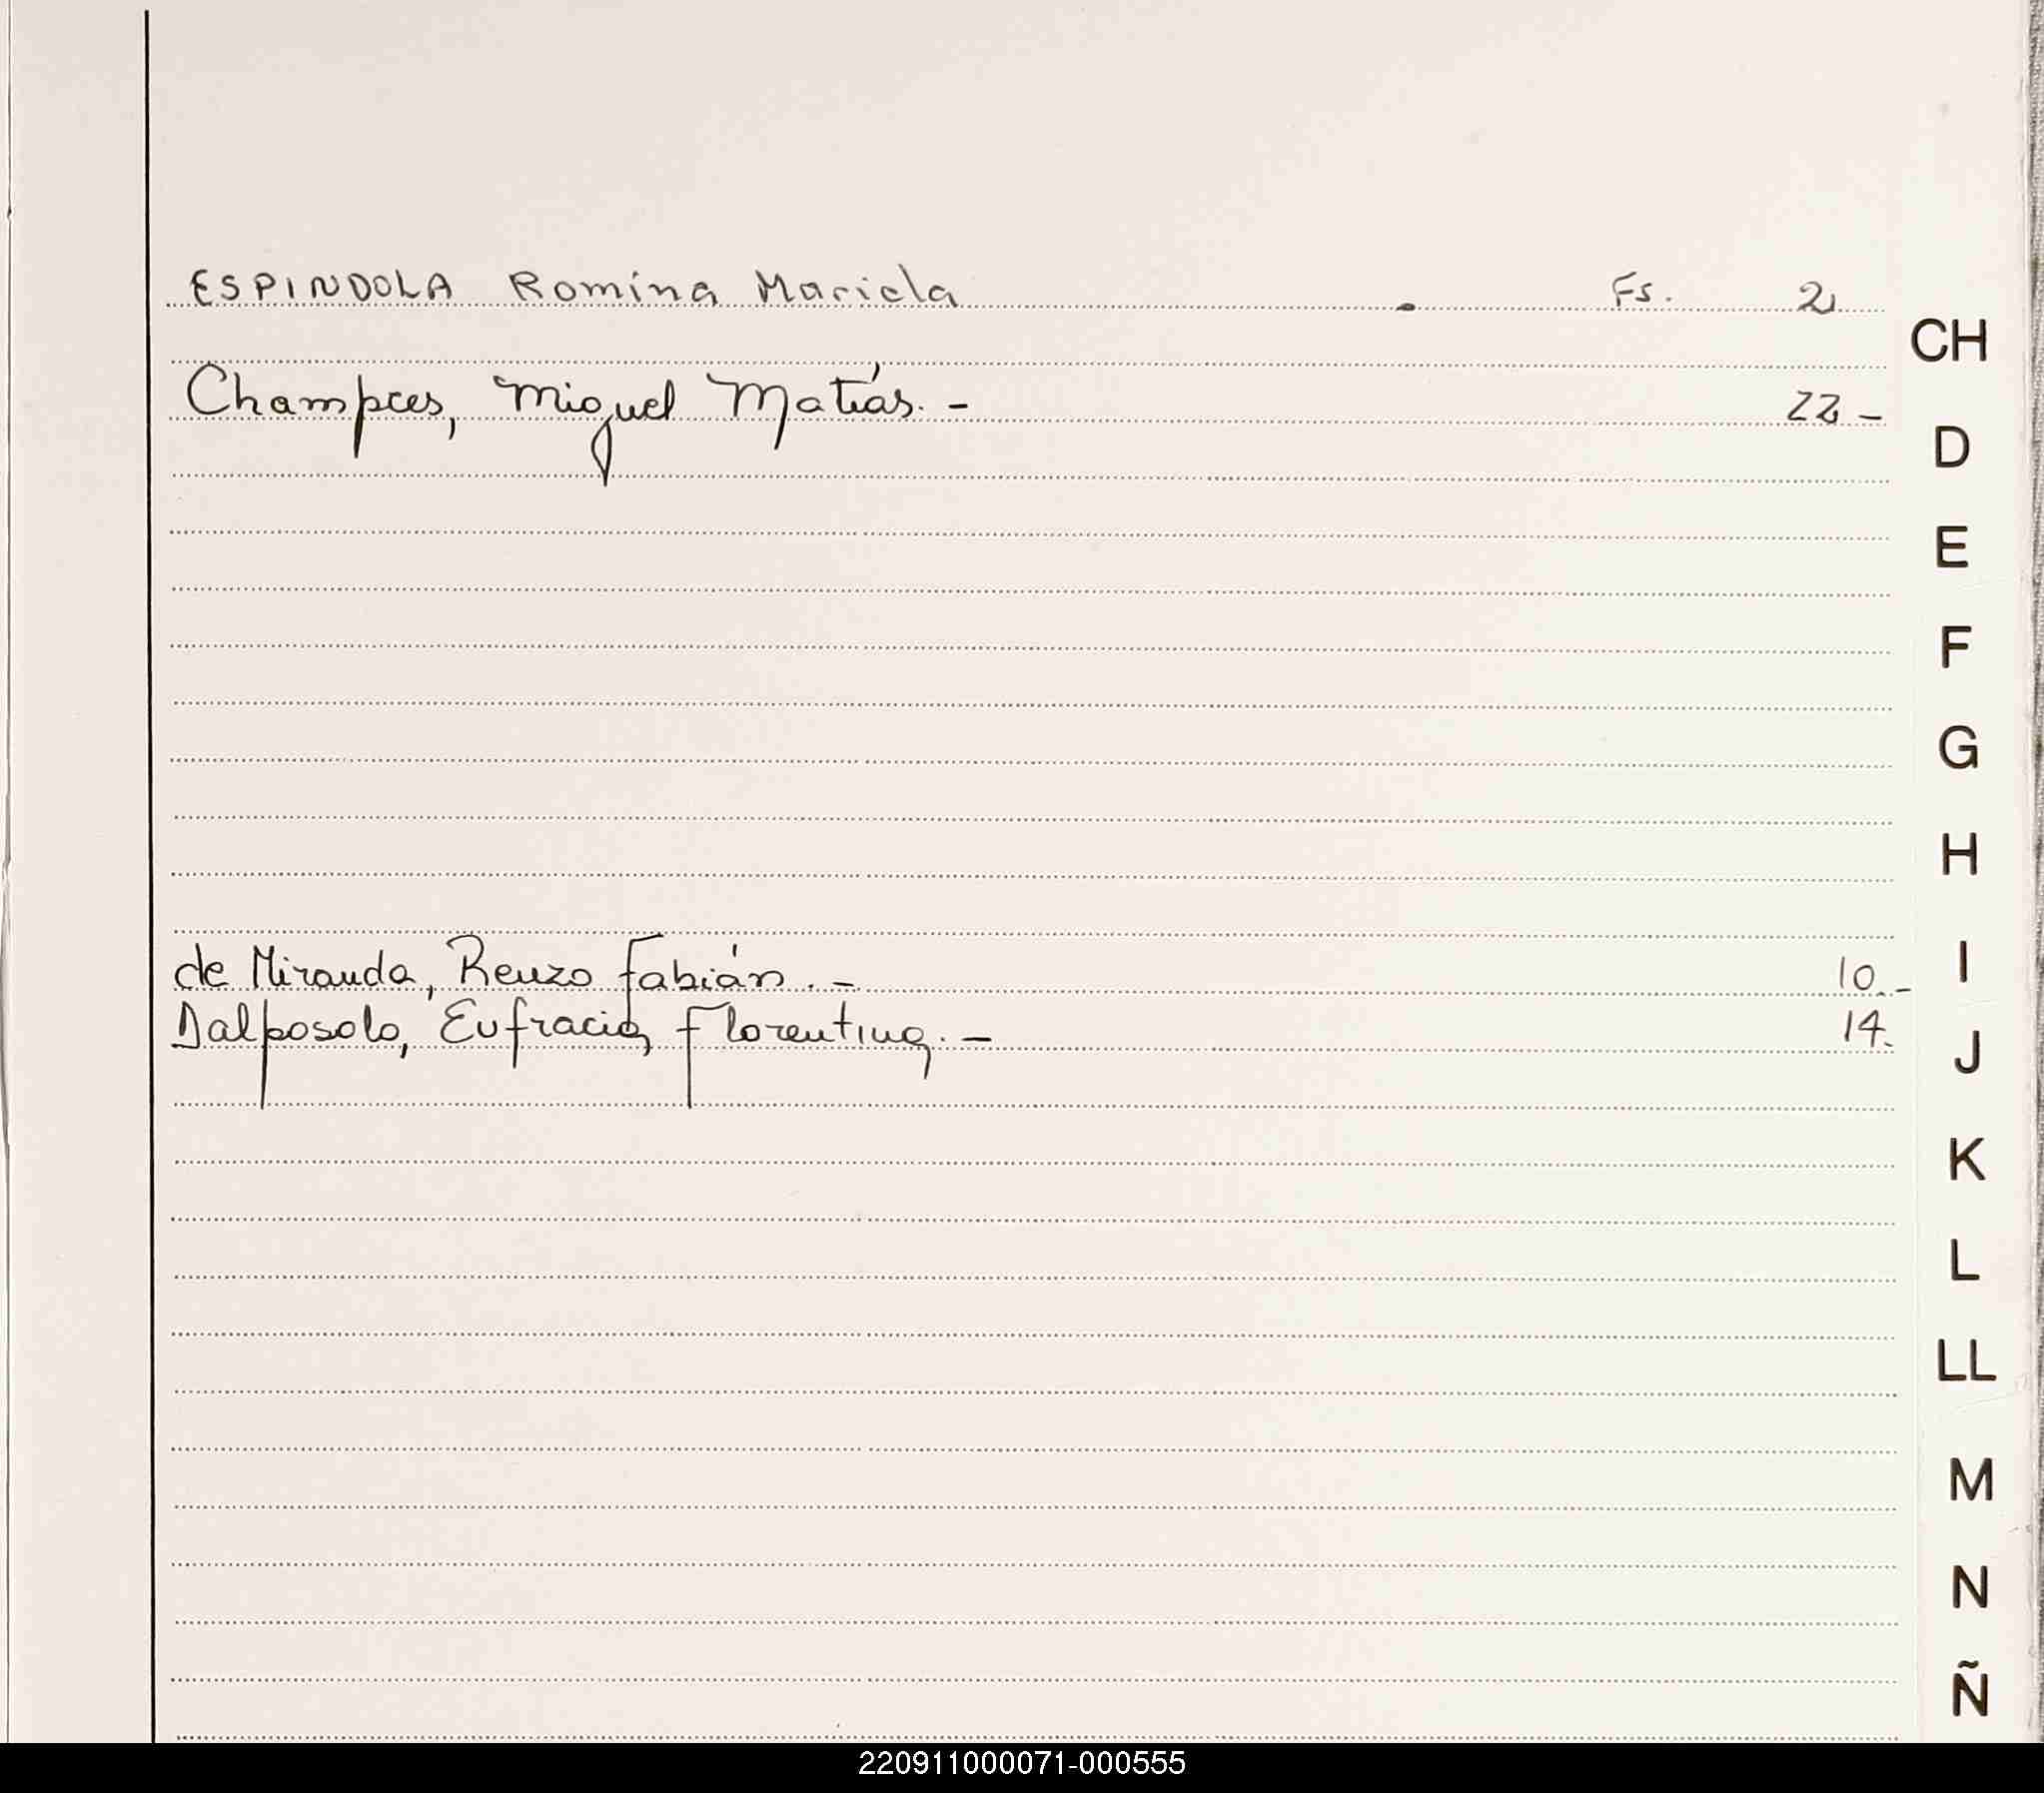 ESPINDOLA Romina Mariela Fs. 2
CH
Champres, Miguel Matías.- 22-
D
E
F
G
H
de Miranda, Renzo Fabián.- 10.-
I
Dalposolo, Eufracia Florentina.- 14.
J
K
L
LL
M
N
Ñ
220911000071-000555